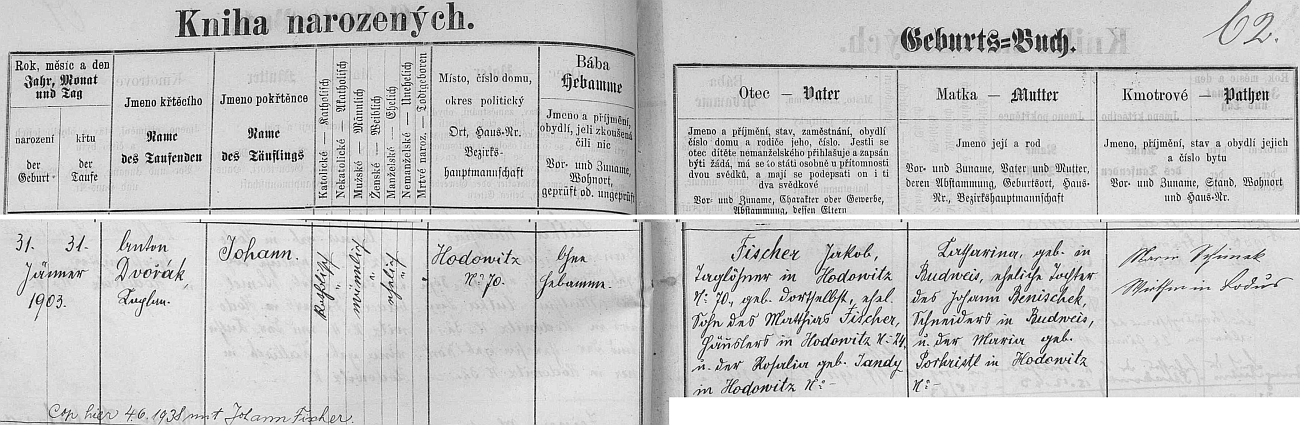 Kniha narozených.
Geburts=Buch.
62.
Rok, měsíc a den
Jahr, Monat
und Tag
narození
der
Geburt
křtu
der
Taufe
Jmeno křtěcího
Name
des Taufenden
Jmeno pokřtěnce
Name
des Täuflings
Katolické — Katholisch
Nekatolické — Akatholisch
Mužské — Männlich
Ženské — Weiblich
Manželské — Ehelich
Nemanželské — Unehelich
Mrtvé naroz. — Todtgeboren
Místo, číslo domu,
okres politický
Ort, Haus-Nr.
Bezirks-
hauptmannschaft
Bába
Hebamme
Jmeno a příjmění,
obydlí, jeli zkoušená
čili nic
Vor- und Zuname,
Wohnort,
geprüft od. ungeprüft
Otec — Vater
Jmeno a příjmění, stav, zaměstnání, obydlí
číslo domu a rodiče jeho, číslo. Jestli se
otec dítěte nemanželského přihlašuje a zapsán
býti žádá, má se to státi osobně u přítomnosti
dvou svědků, a mají se podepsati on i ti
dva svědkové
Vor- und Zuname, Charakter oder Gewerbe,
Abstammung, dessen Eltern
Matka — Mutter
Jmeno její a rod
Vor- und Zuname, Vater und Mutter,
deren Abstammung, Geburtsort, Haus-
Nr., Bezirkshauptmannschaft
Kmotrové — Pathen
Jmeno, příjmění, stav a obydlí jejich
a číslo bytu
Vor- und Zuname, Stand, Wohnort
und Haus-Nr.
31. 31.
Jänner
1903.
Anton
Dvořák,
Kaplan.
Johann.
katholisch
männlich
ehelich
Hodowitz
N: 70.
Ohne
Hebamme.
Fischer Jakob,
Taglöhner in Hodowitz
N: 70., geb. dortselbst, ehel.
Sohn des Matthias Fischer,
Häuslers in Hodowitz N: 24
u. der Rosalia geb. Jandy
in Hodowitz N: -
Katharina, geb. in
Budweis, eheliche Tochter
des Johann Benischek,
Schneiders in Budweis,
u. der Maria geb.
in Hodowitz
N: -
Cop. hier 4.6.1938 mit Johann Fischer.